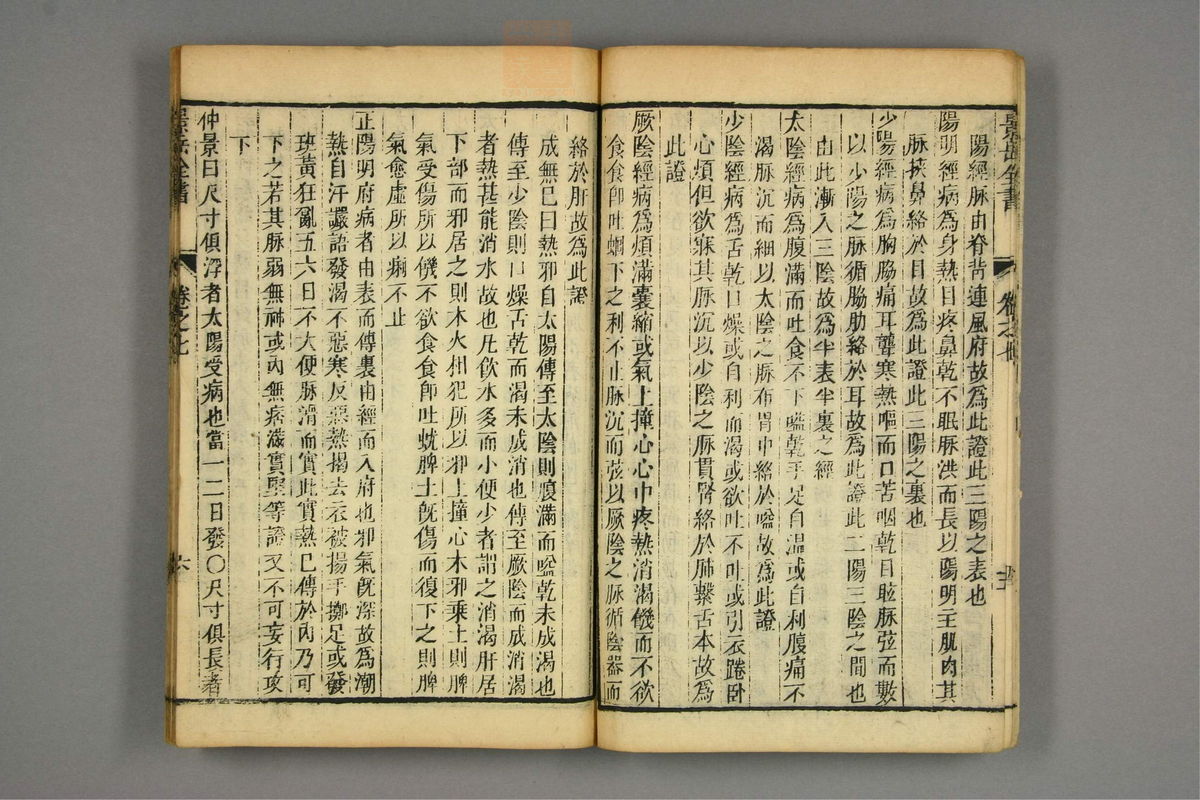 景岳全書
陽經脉由脊背連風府故爲此證此三陽之表也
陽明經病爲身熱目疼鼻乾不眠脉洪而長以陽明主肌肉其
脉挾鼻絡於目故爲此證此三陽之裏也
少陽經病爲胸脇痛耳聾寒熱嘔而口苦咽乾目眩脉弦而數
以少陽之脉循脇肋絡於耳故爲此證此二陽三陰之間也
由此漸入三陰故爲半表半裏之經
太陰經病爲腹滿而吐食不下嗌乾手足自温或自利腹痛不
渴脉沉而細以太陰之脉布胃中絡於嗌故爲此證
少陰經病爲舌乾口燥或自利而渴或欲吐不吐或引衣踡卧
心煩但欲寐其脉沉以少陰之脉貫腎絡於肺繫舌本故爲
此證
厥陰經病爲煩滿囊縮或氣上撞心心中疼熱消渴饑而不欲
食食卽吐蛔下之利不止脉沉而弦以厥陰之脉循陰器而
絡於肝故爲此證
成無巳曰熱邪自太陽傳至太陰則腹滿而嗌乾未成渴也
傳至少陰則口燥舌乾而渴未成消也傳至厥陰而成消渴
者熱甚能消水故也凡飲水多而小便少者謂之消渴肝居
下部而邪居之則木火相犯所以邪上撞心木邪乘土則脾
氣受傷所以饑不欲食食卽吐蚘脾土旣傷而復下之則脾
氣愈虛所以痢不止
正陽明府病者由表而傳裏由經而入府也邪氣旣深故爲潮
熱自汗讝語發渴不惡寒反惡熱揭去衣被揚手擲足或發
班黃狂亂五六日不大便脉滑而實此實熱巳傳於內乃可
下之若其脉弱無神或內無痞滿實堅等證又不可妄行攻
下
仲景曰尺寸俱浮者太陽受病也當一二日發〇尺寸俱長者
景岳全書
卷之七
六